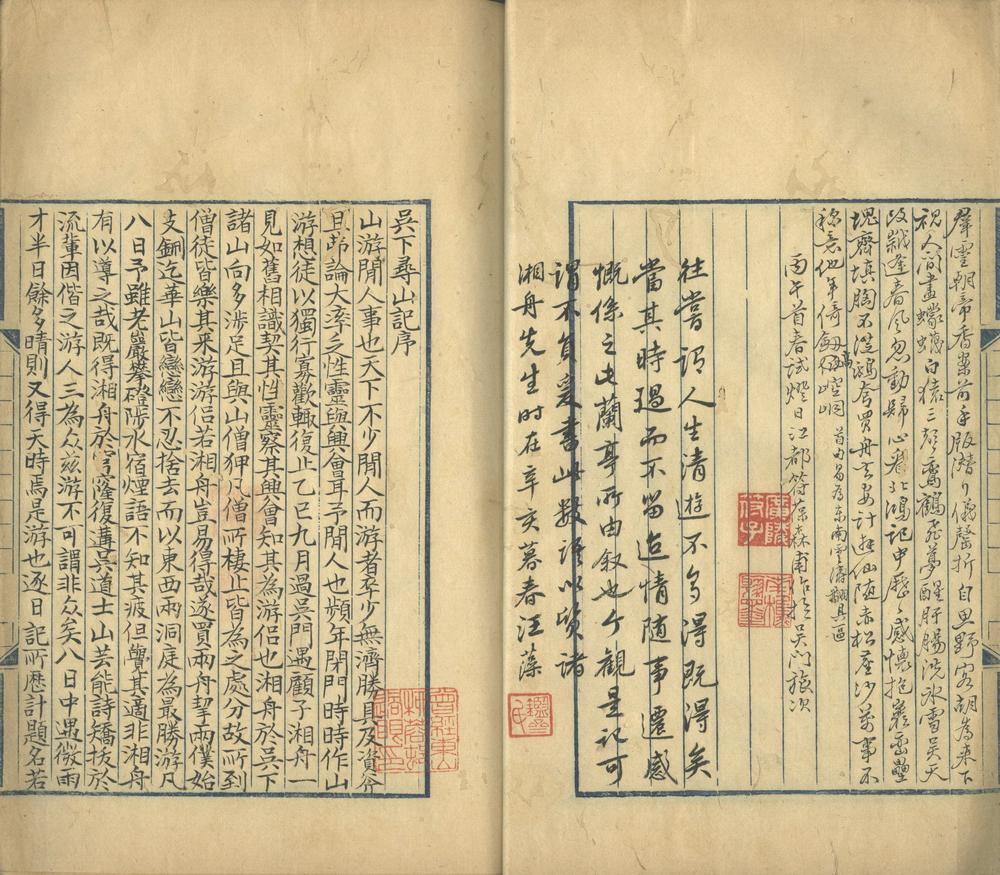 羣靈朝帝香案前手版潛行儼罄折自思野客胡為來下
視人间畫蠟白猿三越鶴飛夢醒肝腸洗冰雪吳天
跂越逢春風忽動歸心看北鴻記中歷歷感懷抱巖壑壘
塊齊填胸不浣鴟夸買舟去要計遊仙随赤松塵沙萬事不
稱意他年倚劍崆峒
丙午首春試燈日江都符葆森甫題於吳門旅次
往嘗謂人生清遊不多得既得矣
當其時過而不留迨情随事遷感
慨係之此蘭亭所由叙也今觀是記可
謂不負矣書此數語以質諸
湘舟先生时在辛亥暮春汪藻
吳下尋山記序
山游閒人事也天下不少閒人而游者卒少無濟勝具及資斧
且勿論大率乏性靈與興會耳予閒人也頻年閉門時時作山
游想徒以獨行寡歡輒復止乙巳九月過吳門遇顧子湘舟一
見如舊相識契其性靈察其興會知其為游侶也湘舟於吳下
諸山向多涉足且與山僧狎凡僧所棲止皆為之處分故所到
僧徒皆樂其來游游侶若湘舟豈易得哉遂買兩舟挈兩僕始
支硎迄華山皆戀戀不忍捨去而以東西兩洞庭為最勝游凡
八日予雖老巖攀磴陟水宿煙語不知其疲但覺其適非湘舟
有以導之哉既得湘舟於穹窿復遘吳道士山芸能詩矯拔於
流輩因偕之游人三為众茲游不可謂非众矣八日中遇微雨
才半日餘多晴則又得天時焉是游也逐日記所歷計題名若